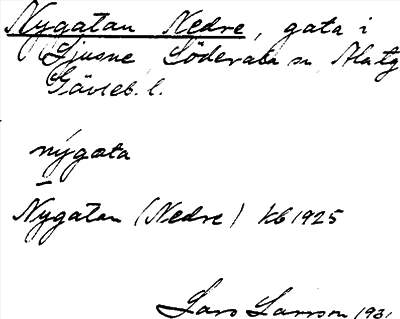 Nygatan Nedre, gata i
Ljusne Söderala sn Ala tg
Gävleb. l.
nýgata
Nygatan (Nedre) kb 1925
Lars Larsson 1931